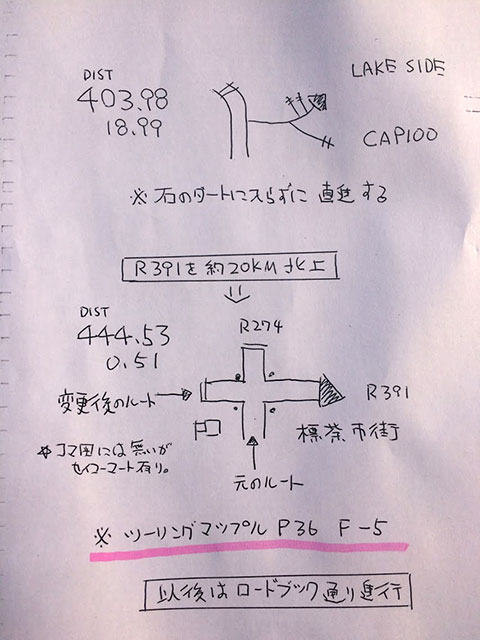 DIST
403.98
18.99
LAKE SIDE
CAP100
※ 右のダートに入らずに 直進する
R391を約20KM北上
DIST
444.53
0.51
R274
変更後のルート
R391
標茶市街
※コマ図には無いが
セイコーマート有り。
元のルート
※ ツーリングマップル P36 F-5
以後はロードブック通り進行